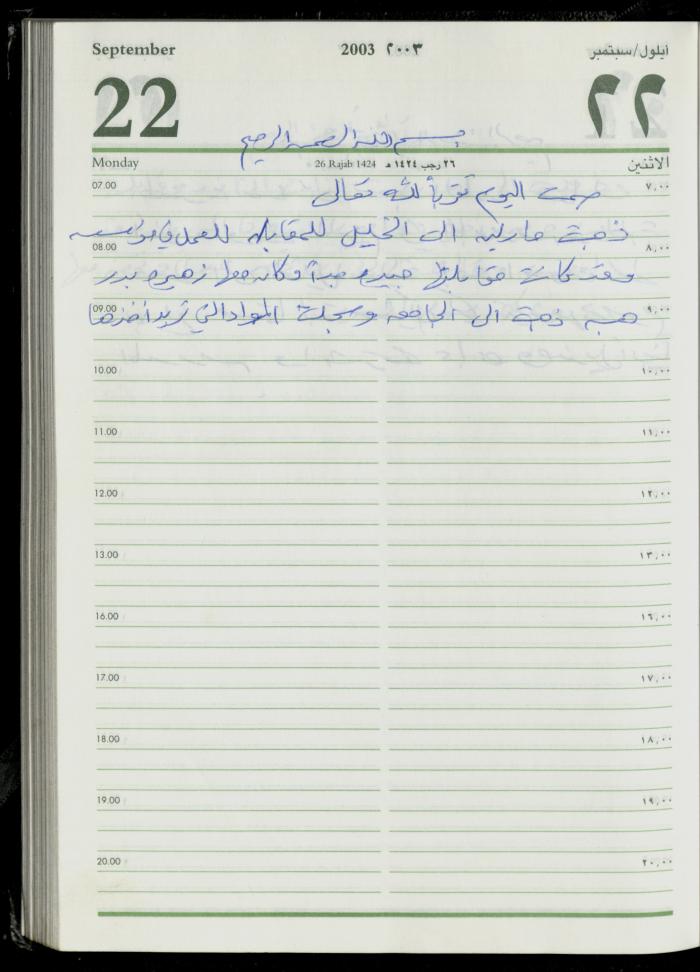 September 2003 ٢٠٠٣ أيلول/سبتمبر
22 ٢٢
بسم الله الرحمن الرحيم
Monday 26 Rajab 1424 ٢٦ رجب ١٤٢٤ هـ الاثنين
07.00 ٧,٠٠
صمت اليوم تقرباً لله تعالى
ذهبت مارلين الى الخليل للمقابلة للعمل في مؤسسه
08.00 ٨,٠٠
وقد كانت مقابلتها جيده جداً وكانت معها زهيره بدر
09.00 ٩,٠٠
هبه ذهبت الى الجامعه وسجلت المواد التي تريد أخذها
10.00 ١٠,٠٠
11.00 ١١,٠٠
12.00 ١٢,٠٠
13.00 ١٣,٠٠
16.00 ١٦,٠٠
17.00 ١٧,٠٠
18.00 ١٨,٠٠
19.00 ١٩,٠٠
20.00 ٢٠,٠٠